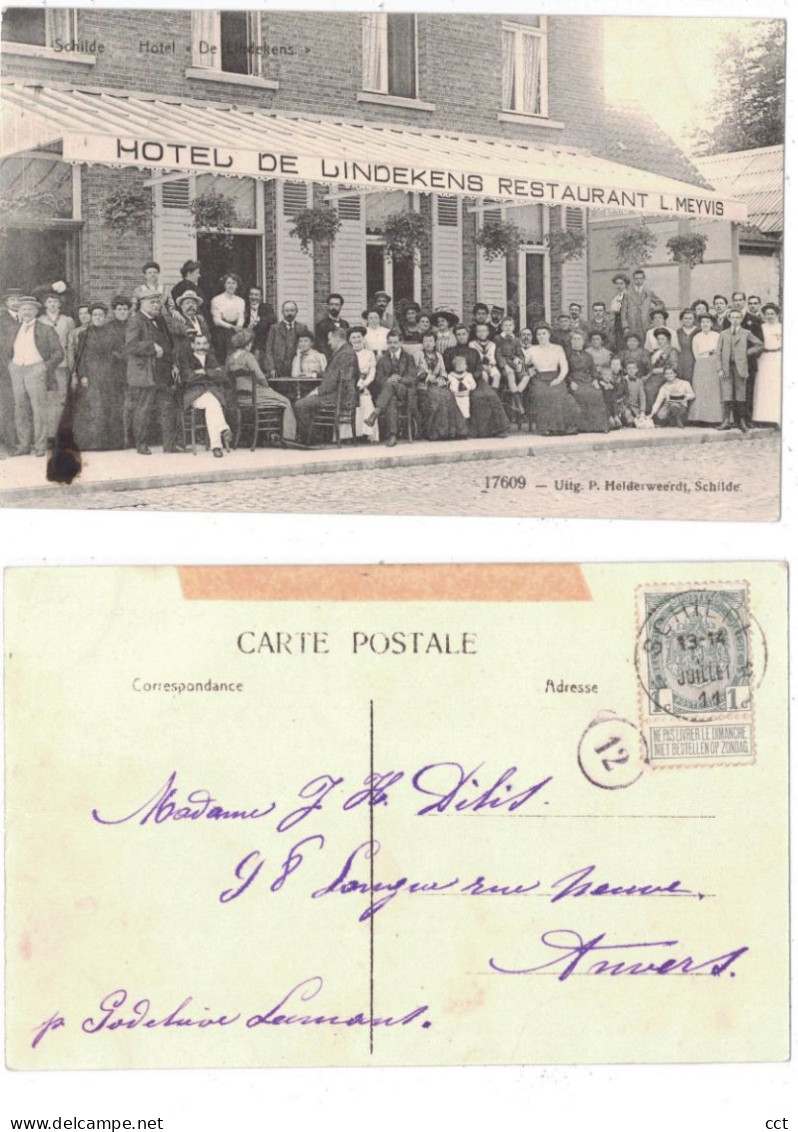 Schilde — Hotel « De Lindekens. »
HOTEL DE LINDEKENS RESTAURANT L. MEYVIS
17609 — Uitg. P. Helderweerdt, Schilde
CARTE POSTALE
Correspondance
Adresse
SCHILDE
13-14
JUILLET
11
1c 1c
NE PAS LIVRER LE DIMANCHE
NIET BESTELLEN OP ZONDAG
12
Madame J. H. Dilis.
98 Longue rue Neuve.
Anvers.
p Godelieve Lamant.
www.delcampe.net
cct